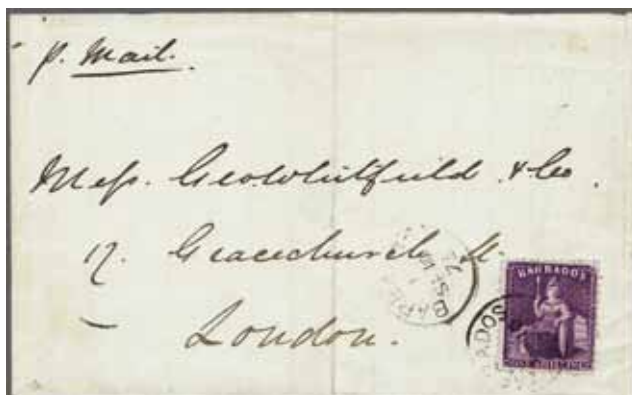 p. Mail.
Mess. Geo Whitfield & Co.
17. Gracechurch St.
London.
BARBADOS
BARBADOS
ONE SHILLING